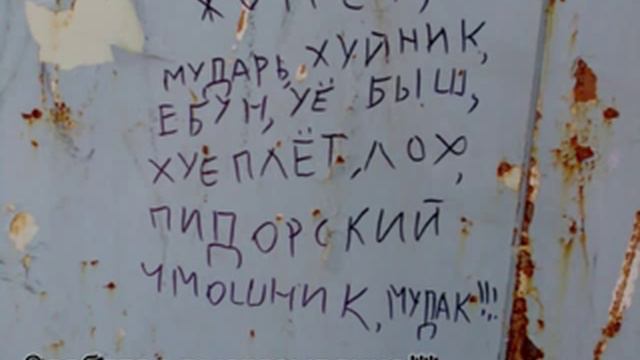 МУДАРЬ, ХУЙНИК,
ЕБУН, УЁБЫШ,
ХУЕПЛЁТ, ЛОХ,
ПИДОРСКИЙ
ЧМОШНИК, МУДАК!!!